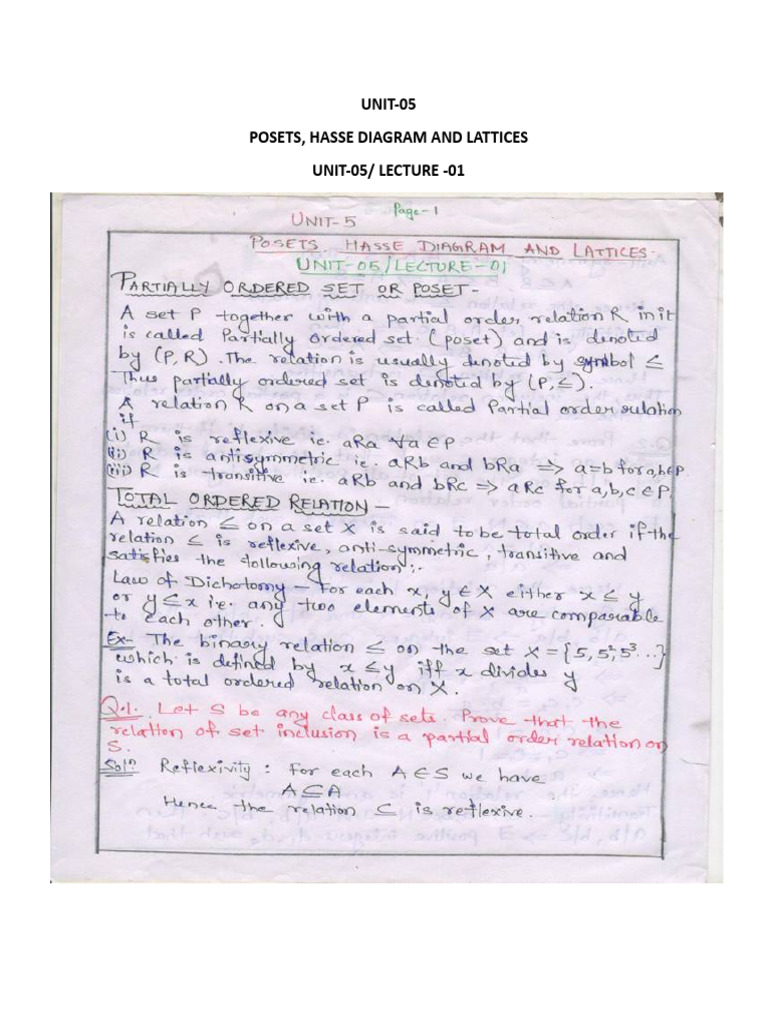 UNIT-05
POSETS, HASSE DIAGRAM AND LATTICES
UNIT-05/ LECTURE -01
Page-1
UNIT-5
POSETS. HASSE DIAGRAM AND LATTICES.
UNIT-05/LECTURE-01
PARTIALLY ORDERED SET OR POSET-
A set P together with a partial order, relation R in it
is called Partially Ordered set (poset) and is denoted
by (P,R). The relation is usually denoted by symbol ≤
Thus partially ordered set is denoted by (P,≤).
A relation R on a set P is called Partial order relation
if
(i) R is reflexive ie. aRa ∀a∈P
(ii) R is antisymmetric ie. aRb and bRa => a=b for a,b∈P.
(iii) R is transitive ie. aRb and bRc => aRc for a,b,c∈P.
TOTAL ORDERED RELATION-
A relation ≤ on a set X is said to be total order if the
relation ≤ is reflexive, anti-symmetric, transitive and
satisfies the following relation;-
Law of Dichotomy - For each x, y ∈ X either x ≤ y
or y ≤ x i.e. any two elements of X are comparable
to each other.
Ex- The binary relation ≤ on the set X = {5, 5², 5³...}
which is defined by x ≤ y iff x divides y
is a total ordered relation on X.
Q.1. Let S be any class of sets. Prove that the
relation of set inclusion is a partial order relation on
S.
Solⁿ Reflexivity : For each A ∈ S we have
A ⊆ A
Hence the relation ⊆ is reflexive.